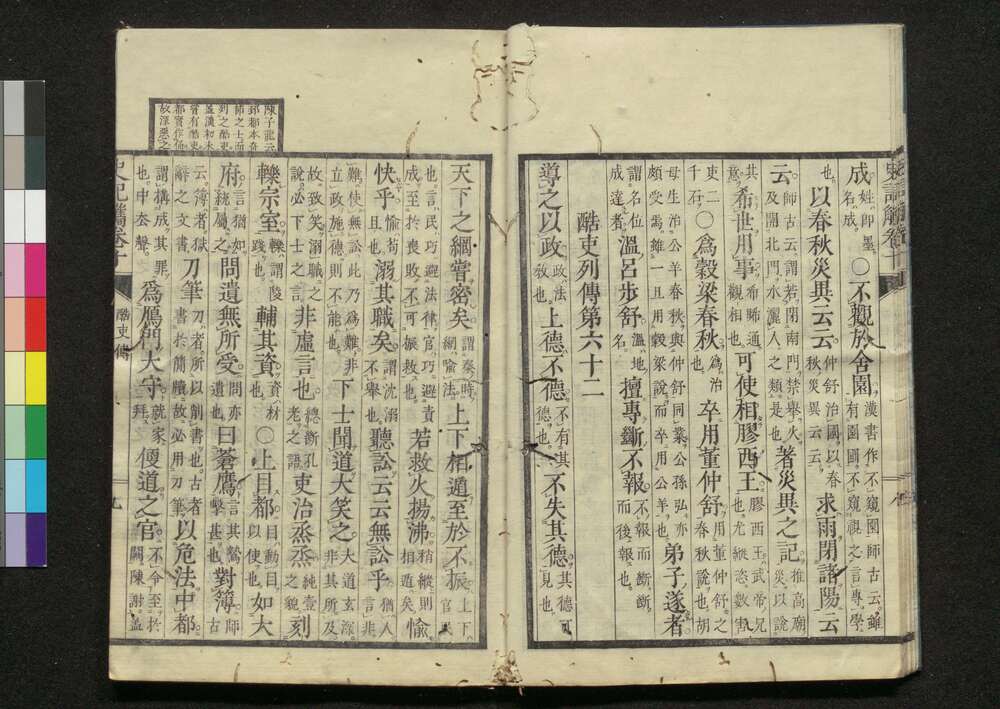 成姓即墨名成○不觀於舍園漢書作不窺園師古云雖有園圃不窺視之言專學
也以春秋災異云云仲舒治國以春秋災異云云求雨閉諸陽云
云師古云謂若閉南門禁舉火及開北門水灑人之類是也著災異之記推高廟災以說
其意希世用事希睎通觀相也可使相膠西王膠西王武帝兄也尤縱恣數害
吏二千石○為穀梁春秋為治也卒用董仲舒用董仲舒之春秋說也胡
母生治公羊春秋與仲舒同業公孫弘亦頗受焉雖一旦用穀梁說而卒用公羊也弟子遂者
謂名位成達者溫呂步舒溫地名擅專斷不報不報而斷斷而後報也
酷吏列傳第六十二
導之以政政法教也上德不德不有其德也不失其德其德可見也
天下之綱嘗密矣謂秦時綱喻法上下相遁至於不振上下官民
也言民巧避法律官巧避責成至於喪敗不可振救也若救火揚沸稍縱則相遁矣愉
快乎愉苟且也溺其職矣謂沈溺不舉也聽訟云云無訟乎猶人言非
難使無訟此乃為難非立政施德則不能也下士聞道大笑之大道玄深非其所及
故致笑溺職之說必下士之言非虛言也總斷孔老之語吏治烝烝純壹之貌刻
轢宗室轢謂陵踐也輔其資資材也○上目都目動目以使也如大
府言猶如統屬之問遺無所受問亦遺也曰蒼鷹言其鷙擊甚也對簿師古
云簿者獄辭之文書刀筆刀者所以削書也古者書於簡牘故必用刀筆以危法中都
謂構成其罪也中去聲為鴈門大守就家拜便道之官不令至於闕陳謝
陳子龍云
郅都本奇
節之士而
列之酷吏
史記
酷吏傳
九